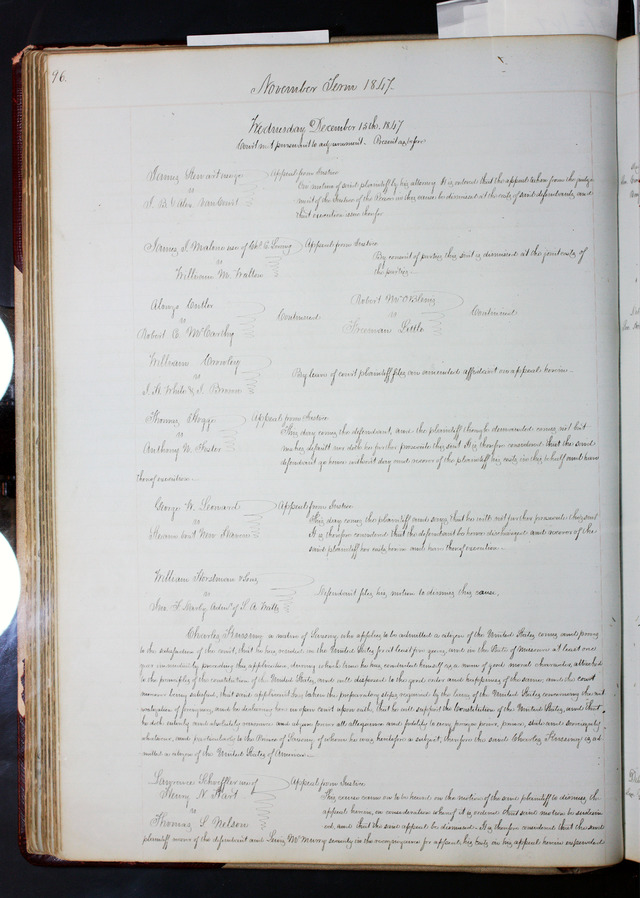 96.
November Term 1847.
Wednesday December 15th. 1847
Court met pursuant to adjournment. Present as before
James Stewart Appeal from Justice
vs On motion of said plaintiff by his attorney It is ordered that the appeal taken from the judge-
J. B. & Alex. ment of the Justice of the Peace in this cause be dismissed at the costs of said defendants, and
that execution issue therefor
James J. Malone use of Appeal from Justice
vs By consent of parties this suit is dismissed at the joint costs of
William M. Walton the parties
Alonzo Cutler Robert
vs Continued vs Continued
Robert C. McCarthy Freeman Little
William Crowley
vs By leave of court plaintiff files an amended affidavit on appeal herein
J. H. White & J. Brown
Thomas Appeal from Justice
vs This day comes the defendant, and the plaintiff though demanded comes not but
Anthony W. Foster makes default nor doth he further prosecute this suit It is therefore considered that the said
defendant go hence without day and recover of the plaintiff his costs in this behalf and have
thereof execution
George W. Leonard Appeal from Justice
vs This day comes the plaintiff and says that he will not further prosecute this suit
Steam boat New It is therefore considered that the defendant be hence discharged and recover of the
said plaintiff his costs herein and have thereof execution
William Horstman & Sons
vs Defendant files his motion to dismiss this cause.
Wm. T. Admr. of
Charles a native of who applies to be admitted a citizen of the United States comes and proves
to the satisfaction of the court, that he has resided in the United States for at least five years, and in the State of Missouri at least one
year immediately preceding this application, during which time he has conducted himself as a man of good moral character, attached
to the principles of the constitution of the United States, and well disposed to the good order and happiness of the same, and the court
moreover being satisfied, that said applicant has taken the preparatory steps required by the laws of the United States concerning the nat-
uralization of foreigners, and he declaring here in open court upon oath, that he will support the Constitution of the United States, and that
he doth entirely and absolutely renounce and abjure forever all allegiance and fidelity to every foreign power, prince, state and sovereignty
whatever, and particularly to the of whom he was heretofore a subject, therefore the said Charles is ad-
mitted a citizen of the United States of America
Lawrence use of Appeal from Justice
Henry N. Hart This cause came on to be heard on the motion of the said plaintiff to dismiss the
vs appeal herein, on consideration whereof it is ordered that said motion be sustain-
Thomas S. Nelson ed, and that the said appeal be dismissed. It is therefore considered that the said
plaintiff recover of the defendant and security in the recognizance for appeal, his costs on his appeal herein expended